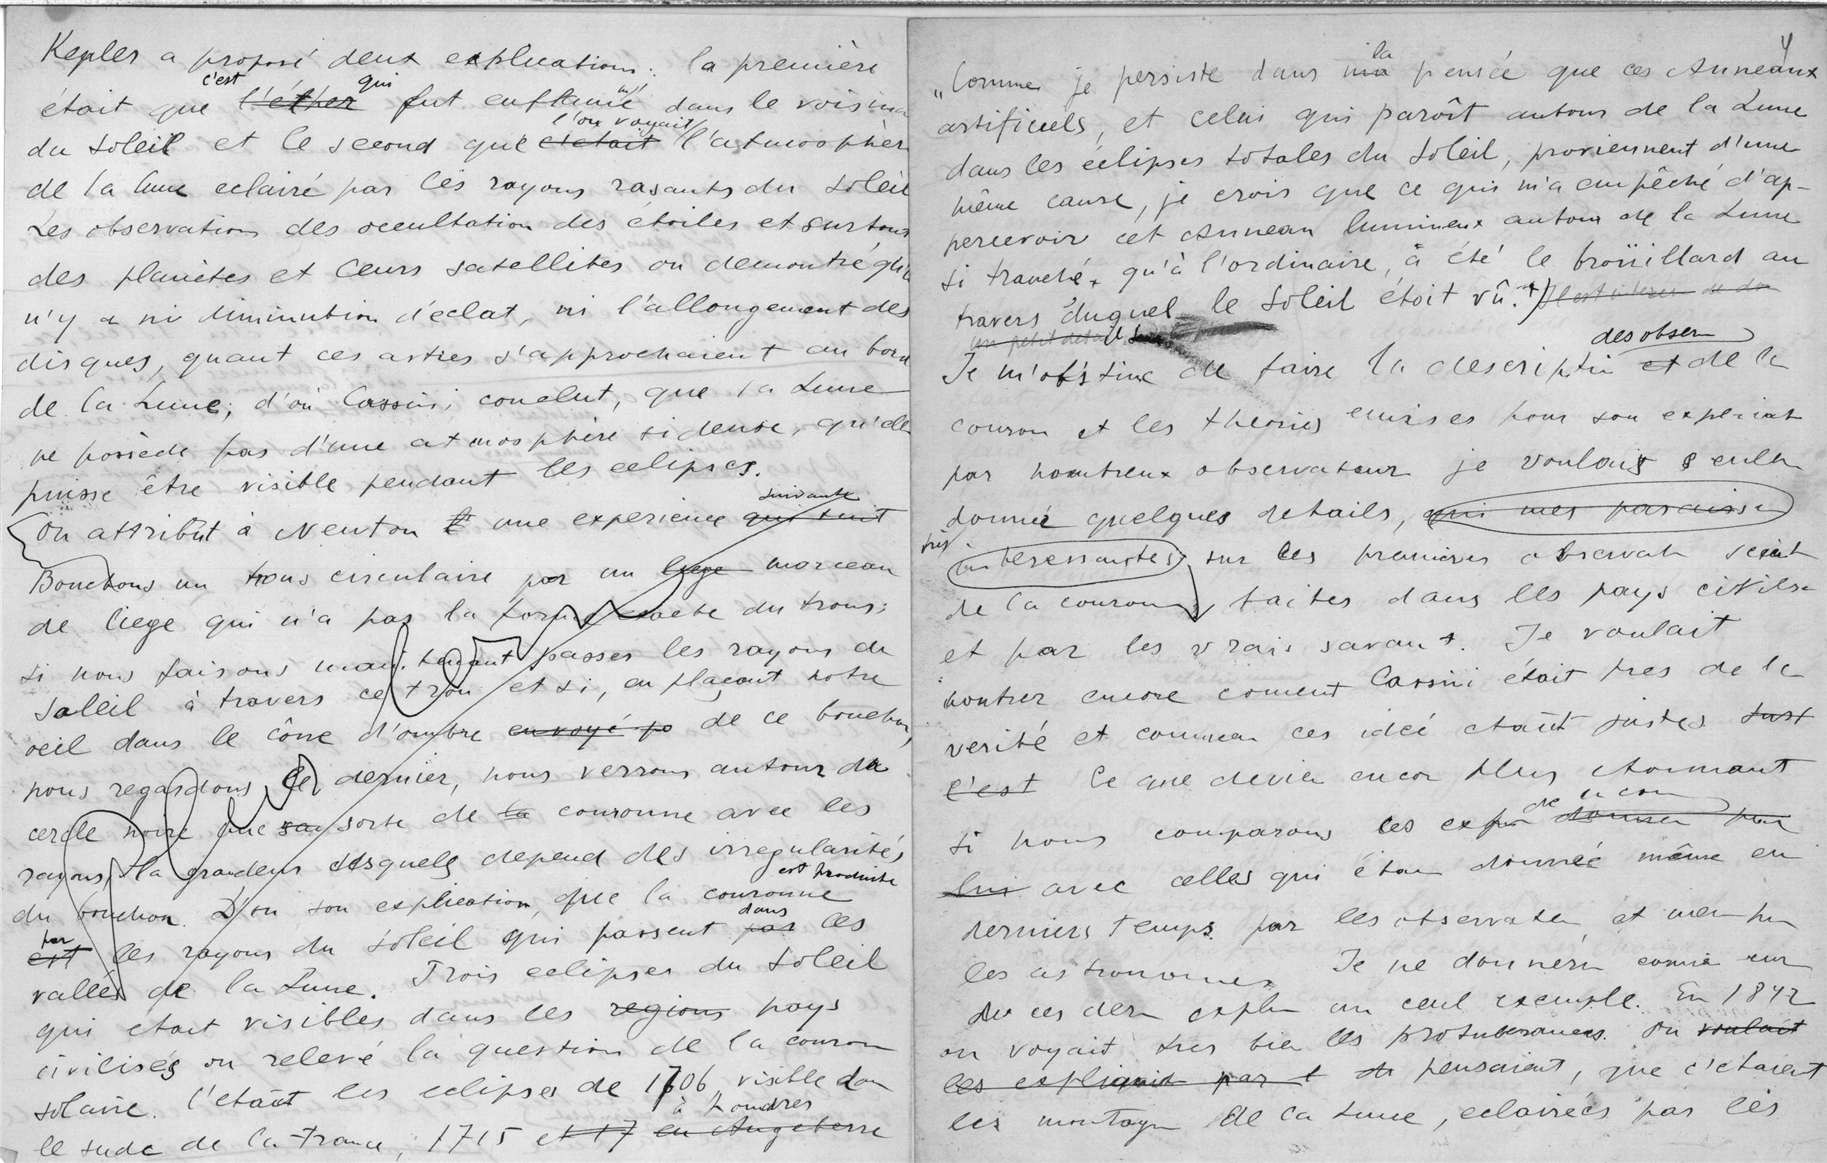 Kepler a proposé deux explications: la première
c'est qui
était que l'ether fut enflamé dans le voisina
l'on voyait
du Soleil et le second que c'etait l'atmosphèr
de la lune eclairé par les rayons rasants du Soleil
Les observations des occultation des étoiles et surtout
des planètes et leurs satellites on demontré qu'il
n'y a ni diminution d'éclat, ni l'allongement des
disques, quant ces astres s'approchaient au bord
de la Lune; d'où Cassini conclut, que la Lune
ne possède pas d'une atmosphère si dense, qu'elle
puisse être visible pendant les eclipses.
suivante
On attribut à Newton une experience qui suit
Bouchons un trous circulaire par un liege morceau
de liege qui n'a pas la forme exacte du trous;
si nous faisons maintenant passer les rayons de
Soleil à travers ce trou et si, en plaçant notre
oeil dans le cône d'ombre envoyé po de ce bouchon,
nous regardons ce dernier, nous verrons autour du
cercle noire une sorte de la couronne avec les
rayons, la grandeur desquels depend des irregularités
est produite
du bouchon. D'ou son explication, que la couronne
par dans
est les rayons du Soleil qui passent par les
vallés de la Lune. Trois eclipses du Soleil
qui etait visibles dans les regions pays
civilisés on relevé la question de la couron
solaire. C'etait les eclipses de 1706 visible dan
à Londres
le sude de la France, 1715 et 17 en Angeterre
4
la
„Comme je persiste dans ma pensée que ces Anneaux
artificiels, et celui qui paroît autour de la Lune
dans les éclipses totales du Soleil, proviennent d'une
même cause, je crois que ce qui m'a empêché d'ap-
percevoir cet Anneau lumineux autour de la Lune
si tranché, qu'à l'ordinaire, à été le broüillard au
travers duquel le Soleil étoit vû.
des obser
Je m'obstine de faire la descriptin et de la
couron et les theories emises pour son explicat
par nombreux observateur je voulais seulle
donné quelques details, qui mes paraisse
très
interessantes, sur les premières observat scient
de la couronne, faites dans les pays civilise
et par les vrais savant. Je voulait
montrer encore coment Cassini était pres de la
verité et commean ces idée etait justes Just
C'est Ce que devien encor plus etonnant
de la cour
si nous comparons ces expli donner pour
lui avec celles qui étai donnée même en
derniers temps par les observate et memme
les astronomes Je ne donnéré comme sur
de ces dern expli un ceul exemple. En 1842
on voyait très bie les protuberances. On voulait
les expliquait par l pensaient, que c'etaient
les montagn de la Lune, eclairées par les